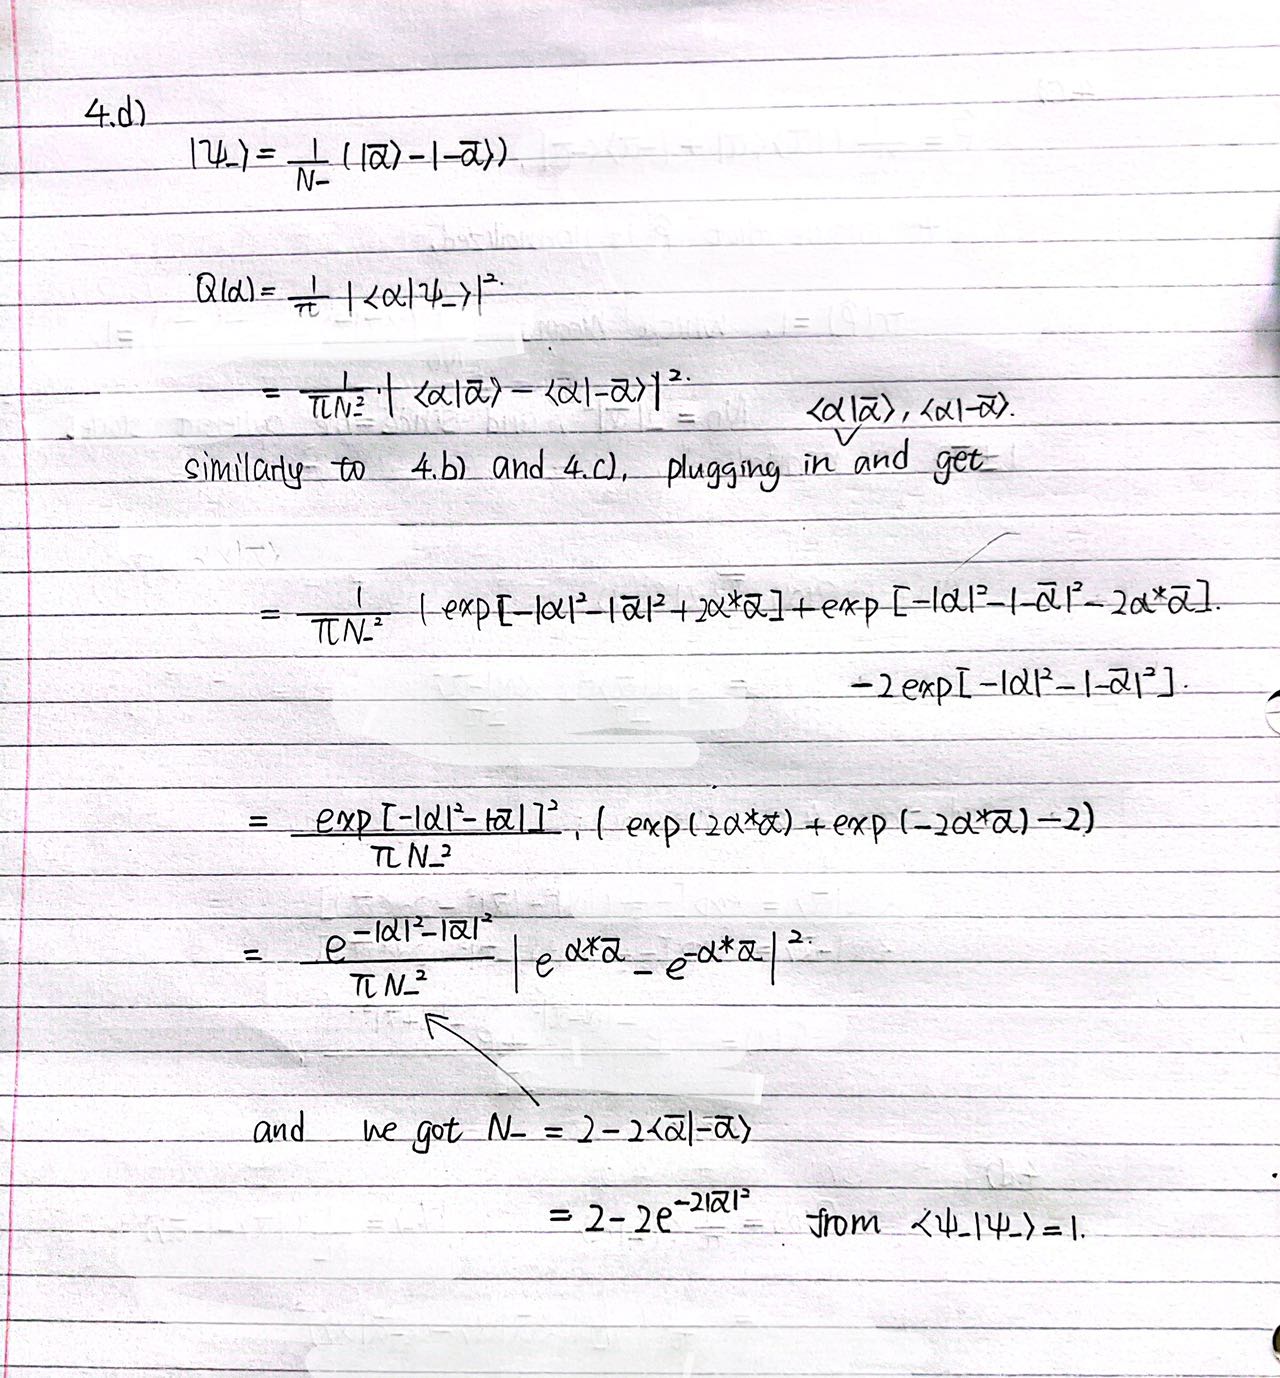 4.d)
|ψ₋⟩ = 1/N₋ (|ᾱ⟩ - |-ᾱ⟩).
Q(α) = 1/π |⟨α|ψ₋⟩|².
= 1/(πN₋²) · |⟨α|ᾱ⟩ - ⟨α|-ᾱ⟩|².
⟨α|ᾱ⟩, ⟨α|-ᾱ⟩.
similarly to 4.b) and 4.c), plugging in and get
= 1/(πN₋²) (exp[-|α|²-|ᾱ|²+2α*ᾱ] + exp[-|α|²-|-ᾱ|²-2α*ᾱ].
-2exp[-|α|²-|-ᾱ|²].
= exp[-|α|²-|ᾱ|]²/(πN₋²) · (exp(2α*ᾱ) + exp(-2α*ᾱ) - 2)
= e^(-|α|²-|ᾱ|²)/(πN₋²) |e^(α*ᾱ) - e^(-α*ᾱ)|².
and we got N₋ = 2 - 2⟨ᾱ|-ᾱ⟩
= 2 - 2e^(-2|ᾱ|²) from ⟨ψ₋|ψ₋⟩ = 1.